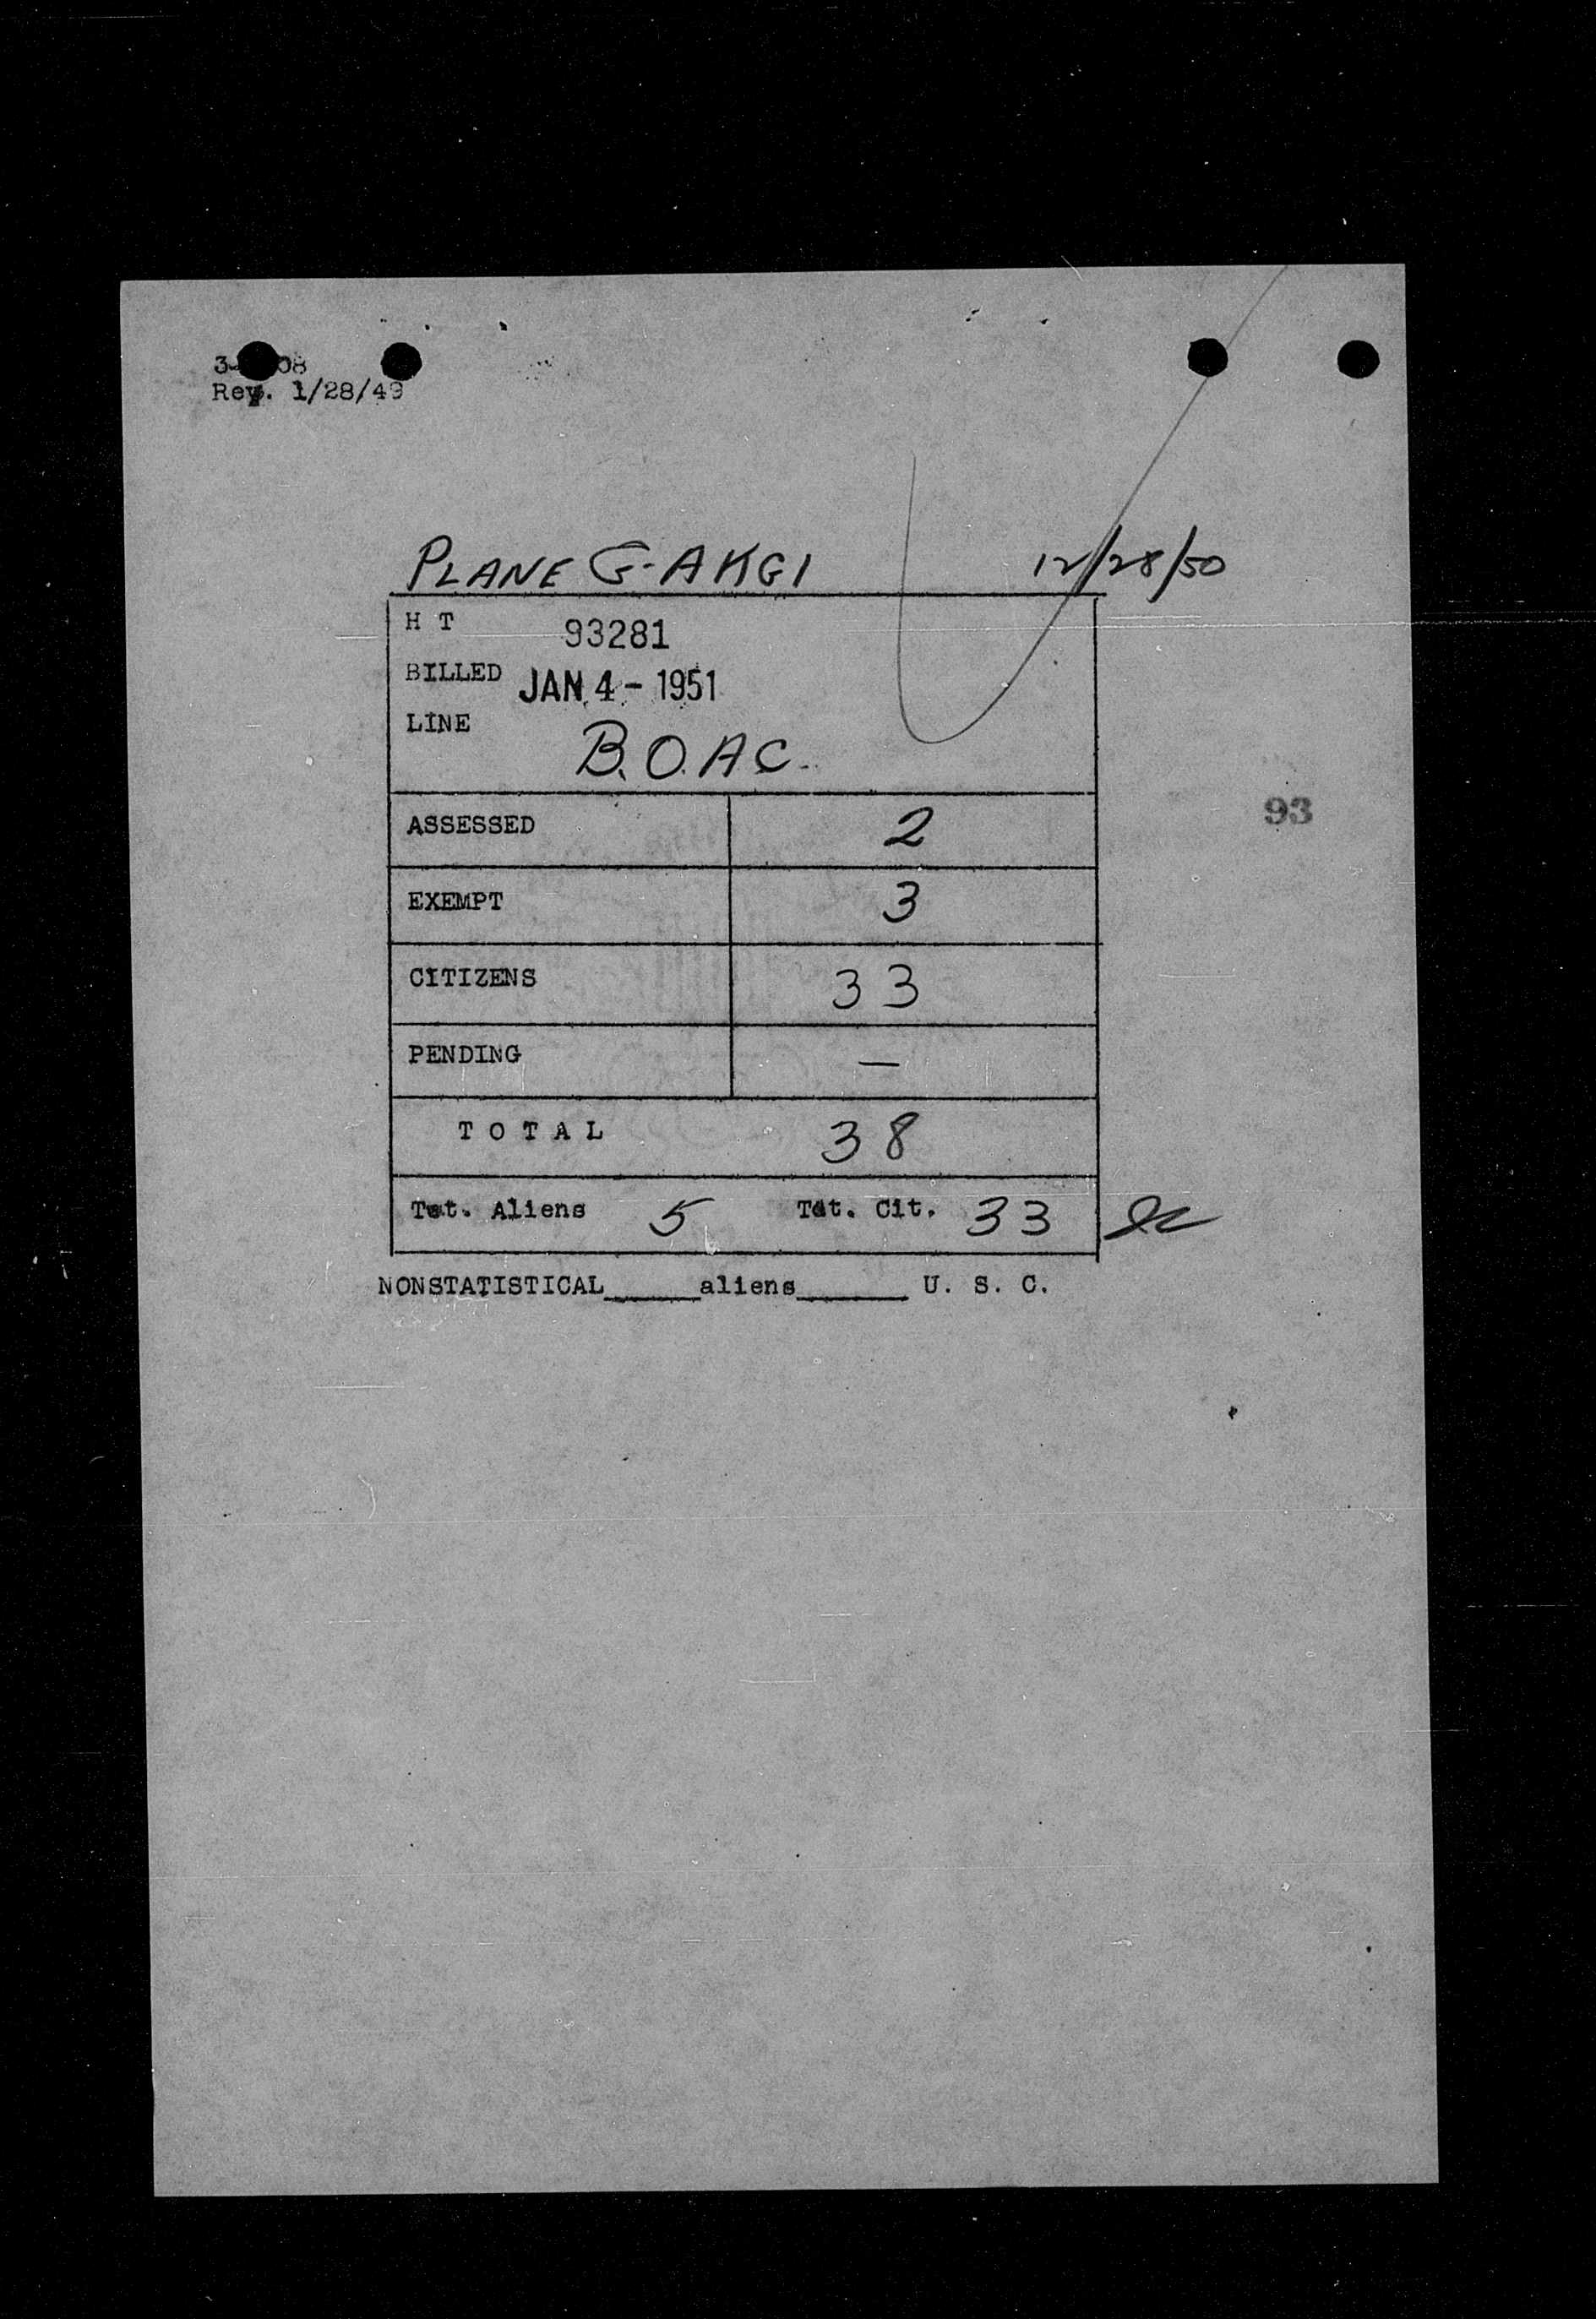 Rev. 1/28/49
PLANE G-AKGI 12/28/50
H T 93281
BILLED JAN 4 - 1951
LINE
B.O.A.C.
ASSESSED 2
93
EXEMPT 3
CITIZENS 33
PENDING —
TOTAL 38
Tot. Aliens 5 Tot. Cit. 33
NONSTATISTICAL_____aliens______ U. S. C.